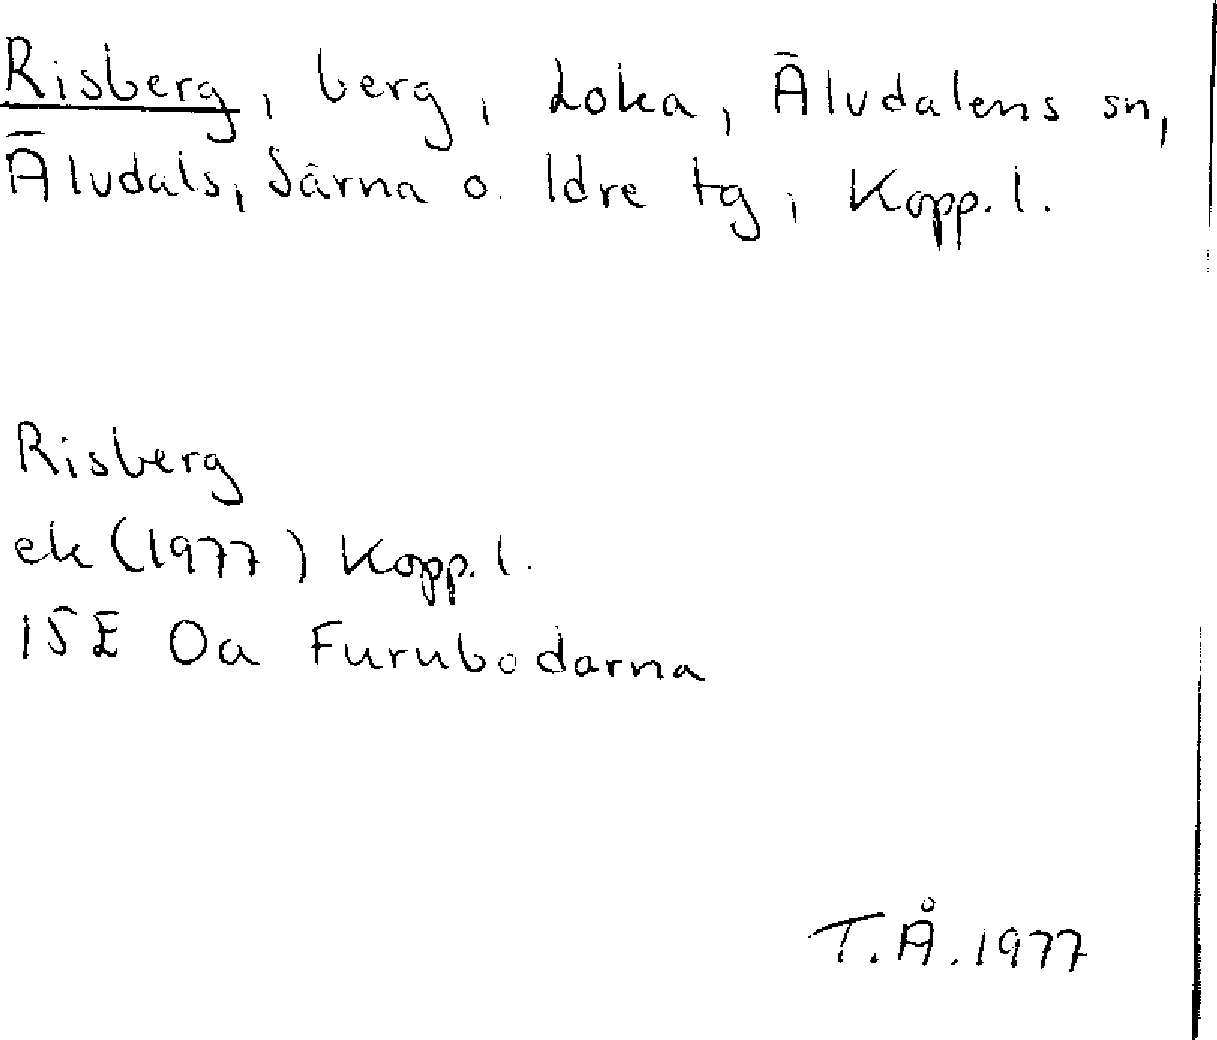 Risberg, berg, Loka, Älvdalens sn,
Älvdals, Särna o. Idre tg, Kopp. l.
Risberg
ek (1977) Kopp. l.
15E 0a Furubodarna
T.Å. 1977